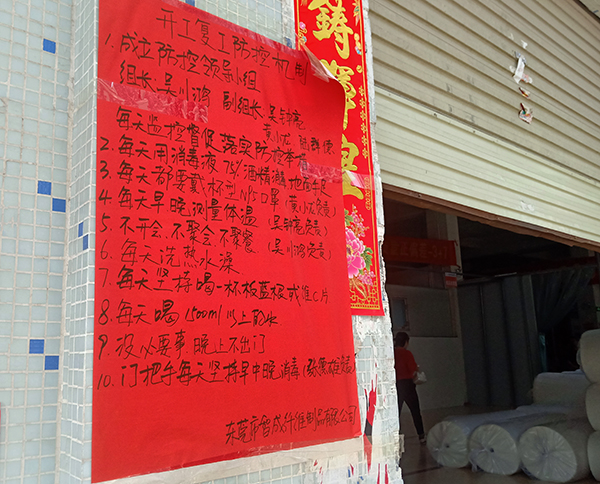 开工复工防控机制
1. 成立防控领导小组
组长:吴川鸿 副组长:吴钟亮
黄小龙
每天监控督促落实防控本措
2. 每天用消毒液75%酒精消地面
3. 每天都要戴杯型N95口罩(黄小龙负责)
4. 每天早晚测量体温(吴钟亮负责)
5. 不开会、不聚会、不聚餐(吴川鸿负责)
6. 每天洗热水澡
7. 每天坚持喝一杯板蓝根或维C片
8. 每天喝1500ml以上的水
9. 没必要事,晚上不出门
10. 门把手每天坚持早中晚消毒(负责)
东莞市智成纤维制品有限公司
鑄
輝